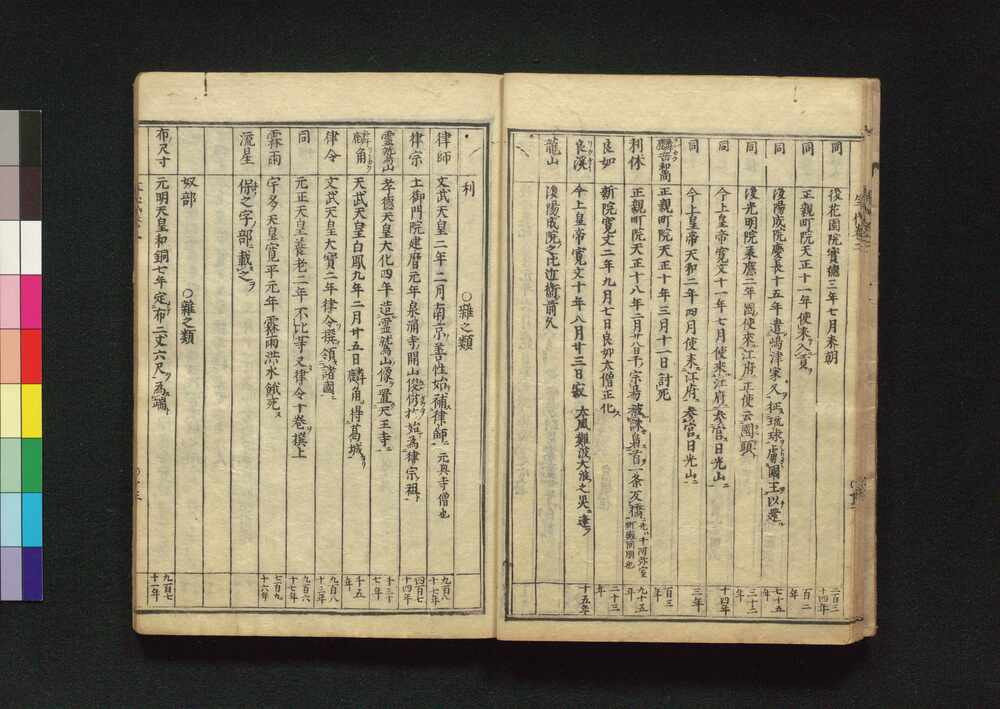 同 後花園院寶德三年七月来朝 二百三十四年
同 正親町院天正十一年使来入貢 百二年
同 後陽成院慶長十五年遣嶋津家久征琉球虜國王以還 七十五年
同 後光明院承應二年國使來江府正使云國頭 三十二年
同 今上皇帝寛文十一年七月使来江府参宮日光山 十四年
同 今上皇帝天和二年四月使来江府参宮日光山 三年
麟岳和尚 正親町院天正十年三月十一日討死 百三年
利休 正親町院天正十八年二月廿八日千宗易被誅梟首一条戻橋 九十五年
良如 新院寛文二年九月七日良如大僧正化 二十三年
良溪 今上皇帝寛文十年八月廿三日寂 大風難波大濵之吳逢 十五年
龍山 後陽成院之比近衛前久
利
○雜之類
律師 文武天皇二年二月南京善性始補律師 元興寺僧也 九百八十七年
律宗 土御門院建暦元年泉涌寺開山俊芿始為律宗祖 四百七十四年
靈鷲山 孝德天皇大化四年造靈鷲山像置天王寺 千三十七年
麟角 天武天皇白鳳九年二月廿五日麟角得葛城 千五年
律令 文武天皇大寳二年律令撰領諸國 九百八十三年
同 元正天皇養老二年不比等又律令十巻撰上 九百六十七年
霖雨 宇多天皇寛平元年霖雨洪水餓死 七百九十六年
流星 保之字部載之
奴部
○雜之類
布尺寸 元明天皇和銅七年定布二丈六尺為端 九百七十一年